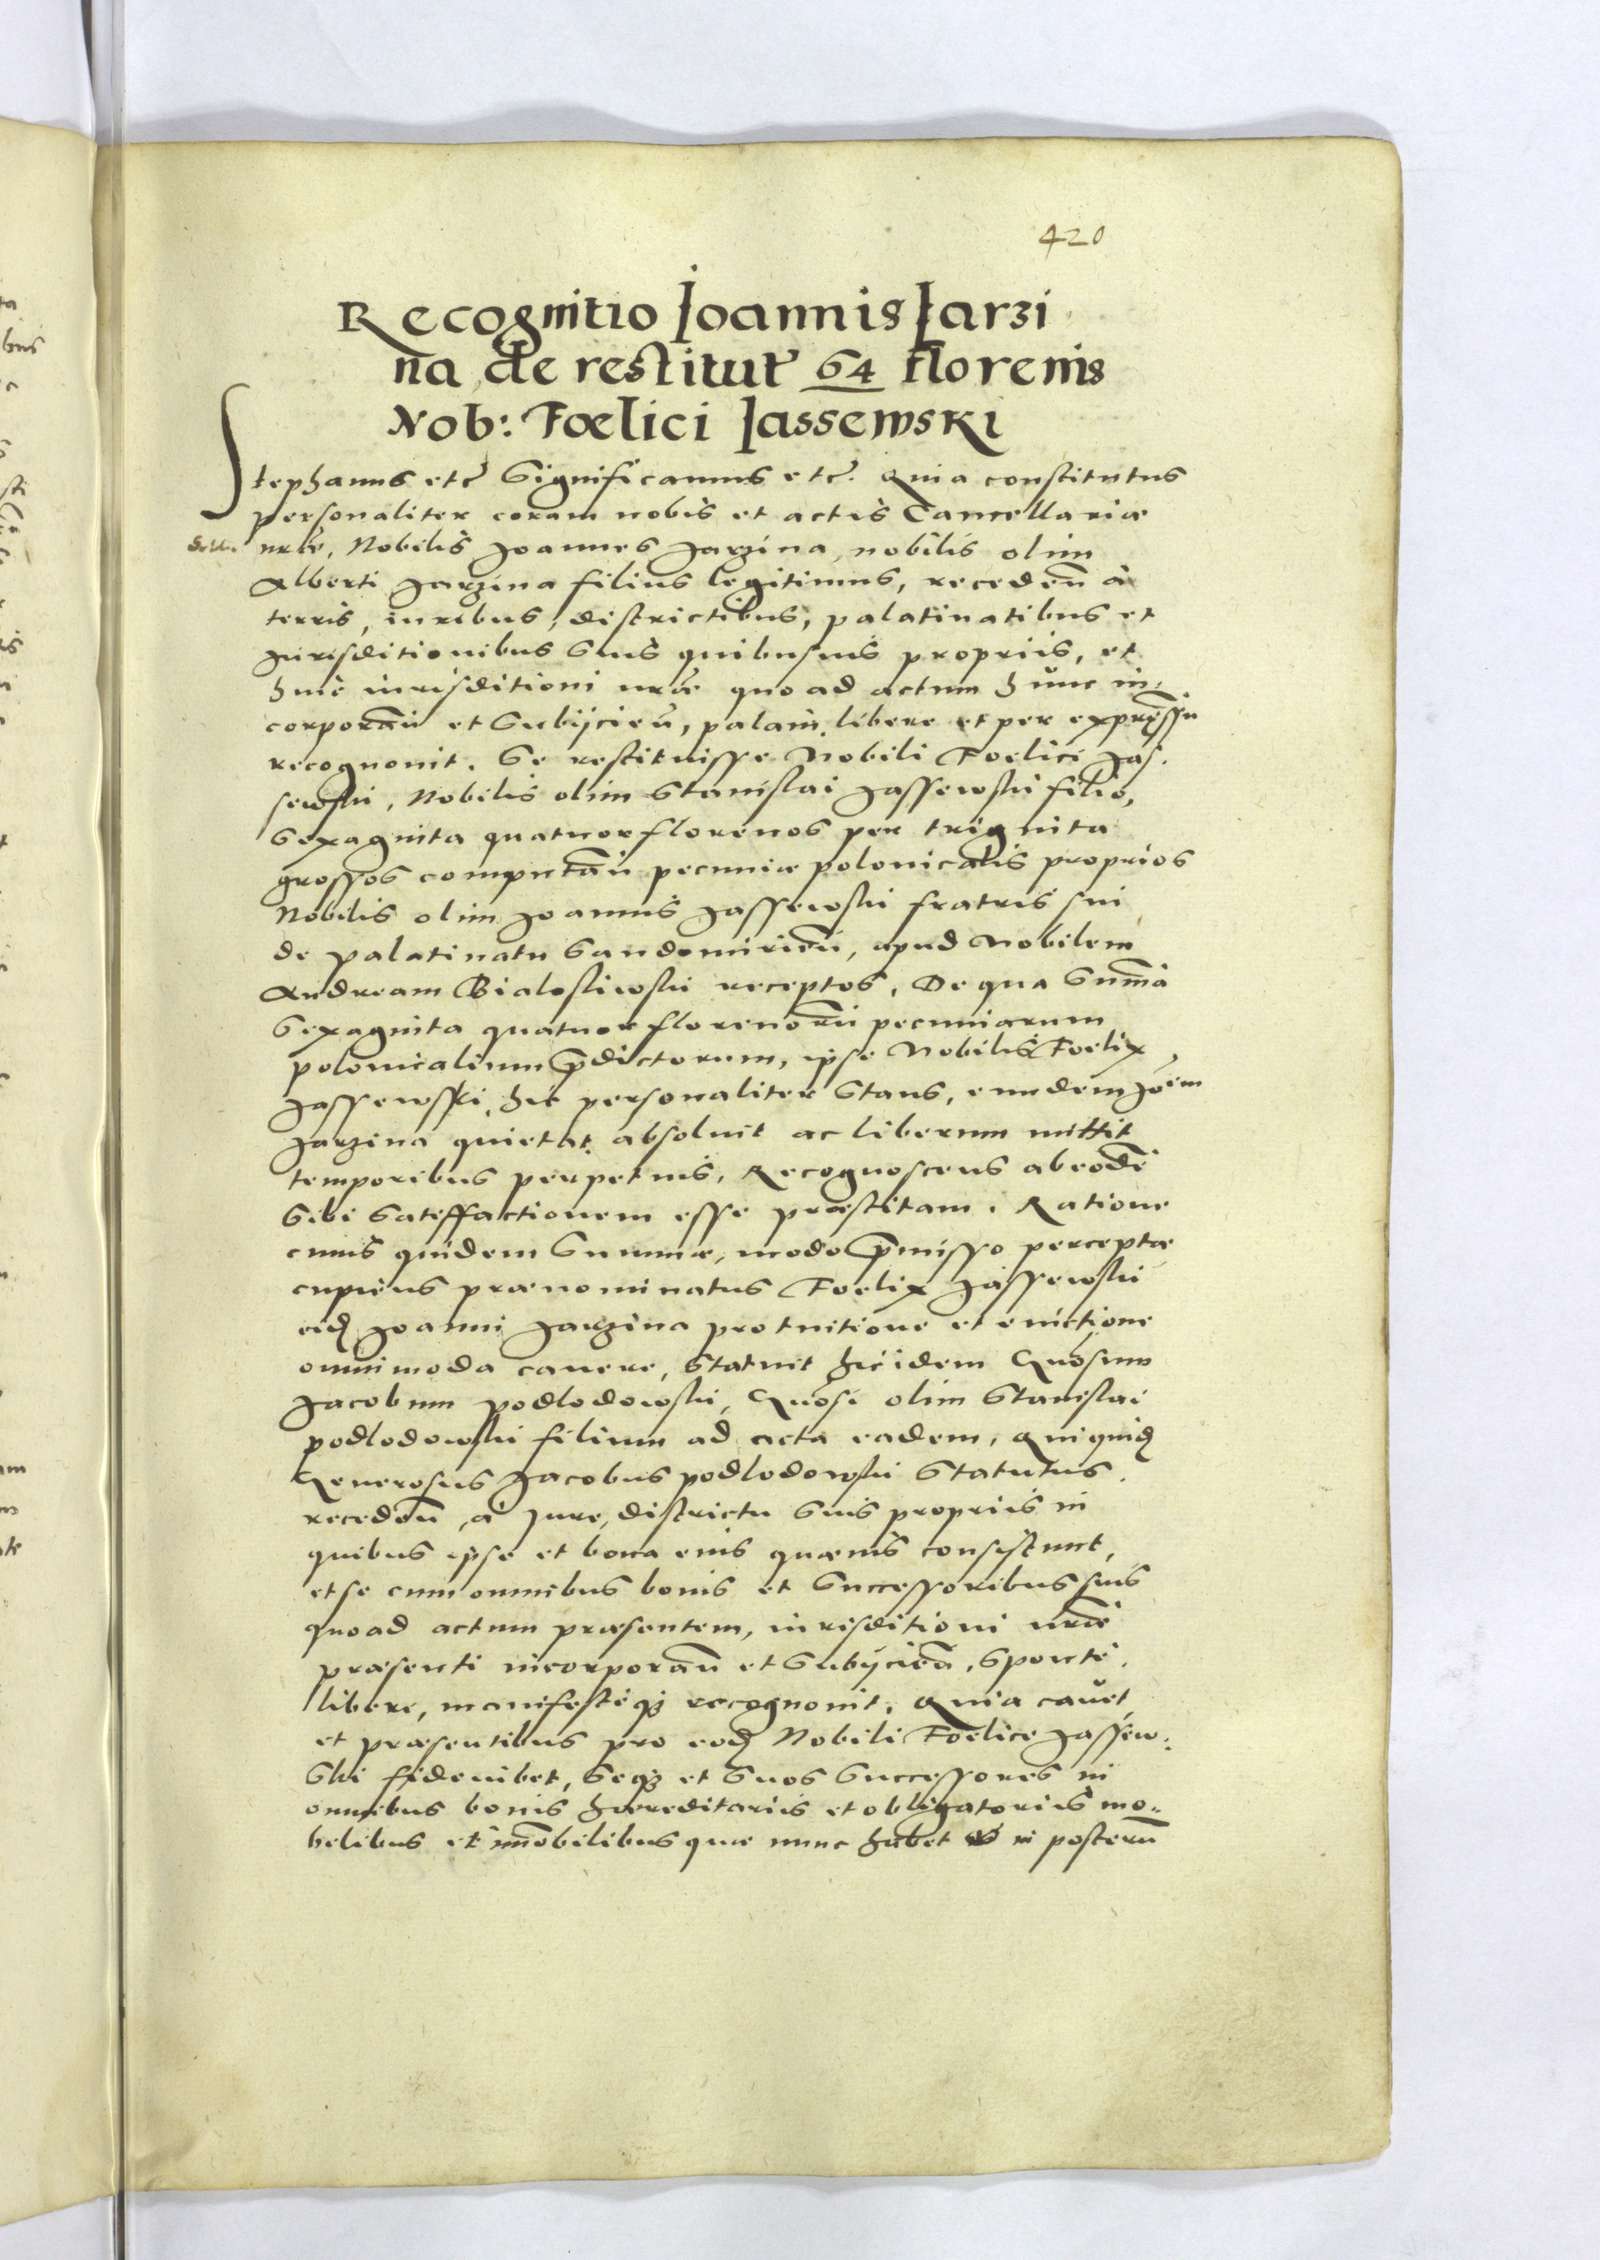 420
Recognitio Joannis Jarzi
na de restitut 64 florenis
Nob: Foelici Jassewski
Stephanus etc Significamus etc. Quia constitutus
personaliter coram nobis et actis Cancellariae
nrae, Nobilis Joannes Jarzina, nobilis olim
Alberti Jarzina filius legitimus, recedeñ à
terris, iuribus, districtibus, palatinatibus et
Jurisditionibus suis quibusuis propriis, et
huic iurisditioni nrae quo ad actum hunc in,
corporañ et subijcieñ, palam libere et per expressũ
recognouit. Se restituisse Nobili Foelici Jas,
sewski, Nobilis olim Stanislai Jassewski filio,
sexaginta quatuor florenos per triginta
grossos computañ pecuniae polonicalis proprios
Nobilis olim Joannis Jassewski fratris sui
de palatinatu Sandomirieñ, apud Nobilem
Andream receptos. De qua sum̃a
sexaginta quatuor florenorũ pecuniarum
polonicalium p̃dictorum, ipse Nobilis Foelix
Jassewski, hic personaliter stans, eundem Joem
Jarzina quietat absoluit ac liberum mittit
temporibus perpetuis. Recognoscens ab eodẽ
sibi satisfactionem esse praestitam. Ratione
cuius quidem summae, modo p̃misso perceptae
cupiens praenominatus Foelix Jassewski
eid Joanni Jarzina pro tuitione et euictione
omnimoda cauere, statuit hic idem Gnosum
Jacobum Podlodowski, Gnosi olim Stanislai
Podlodowski filium ad acta eadem, Qui quid
Generosus Jacobus Podlodowski statutus.
recedeñ, à Jure, districtu suis propriis in
quibus ipse et bona eius quaeuis consistunt,
et se cum omnibus bonis et successoribus suis
quoad actum praesentem, iurisditioni nrae
praesenti incorporañ et subijcieñ, sponte,
libere, manifesteq3 recognouit, Quia cauet,
et praesentibus pro eod Nobili Foelice Jassew,,
ski fideiubet, seq3 et suos successores in
omnibus bonis haereditariis et obligatoriis mo,,
bilibus et im̃obilibus quae nunc habet et in posterũ